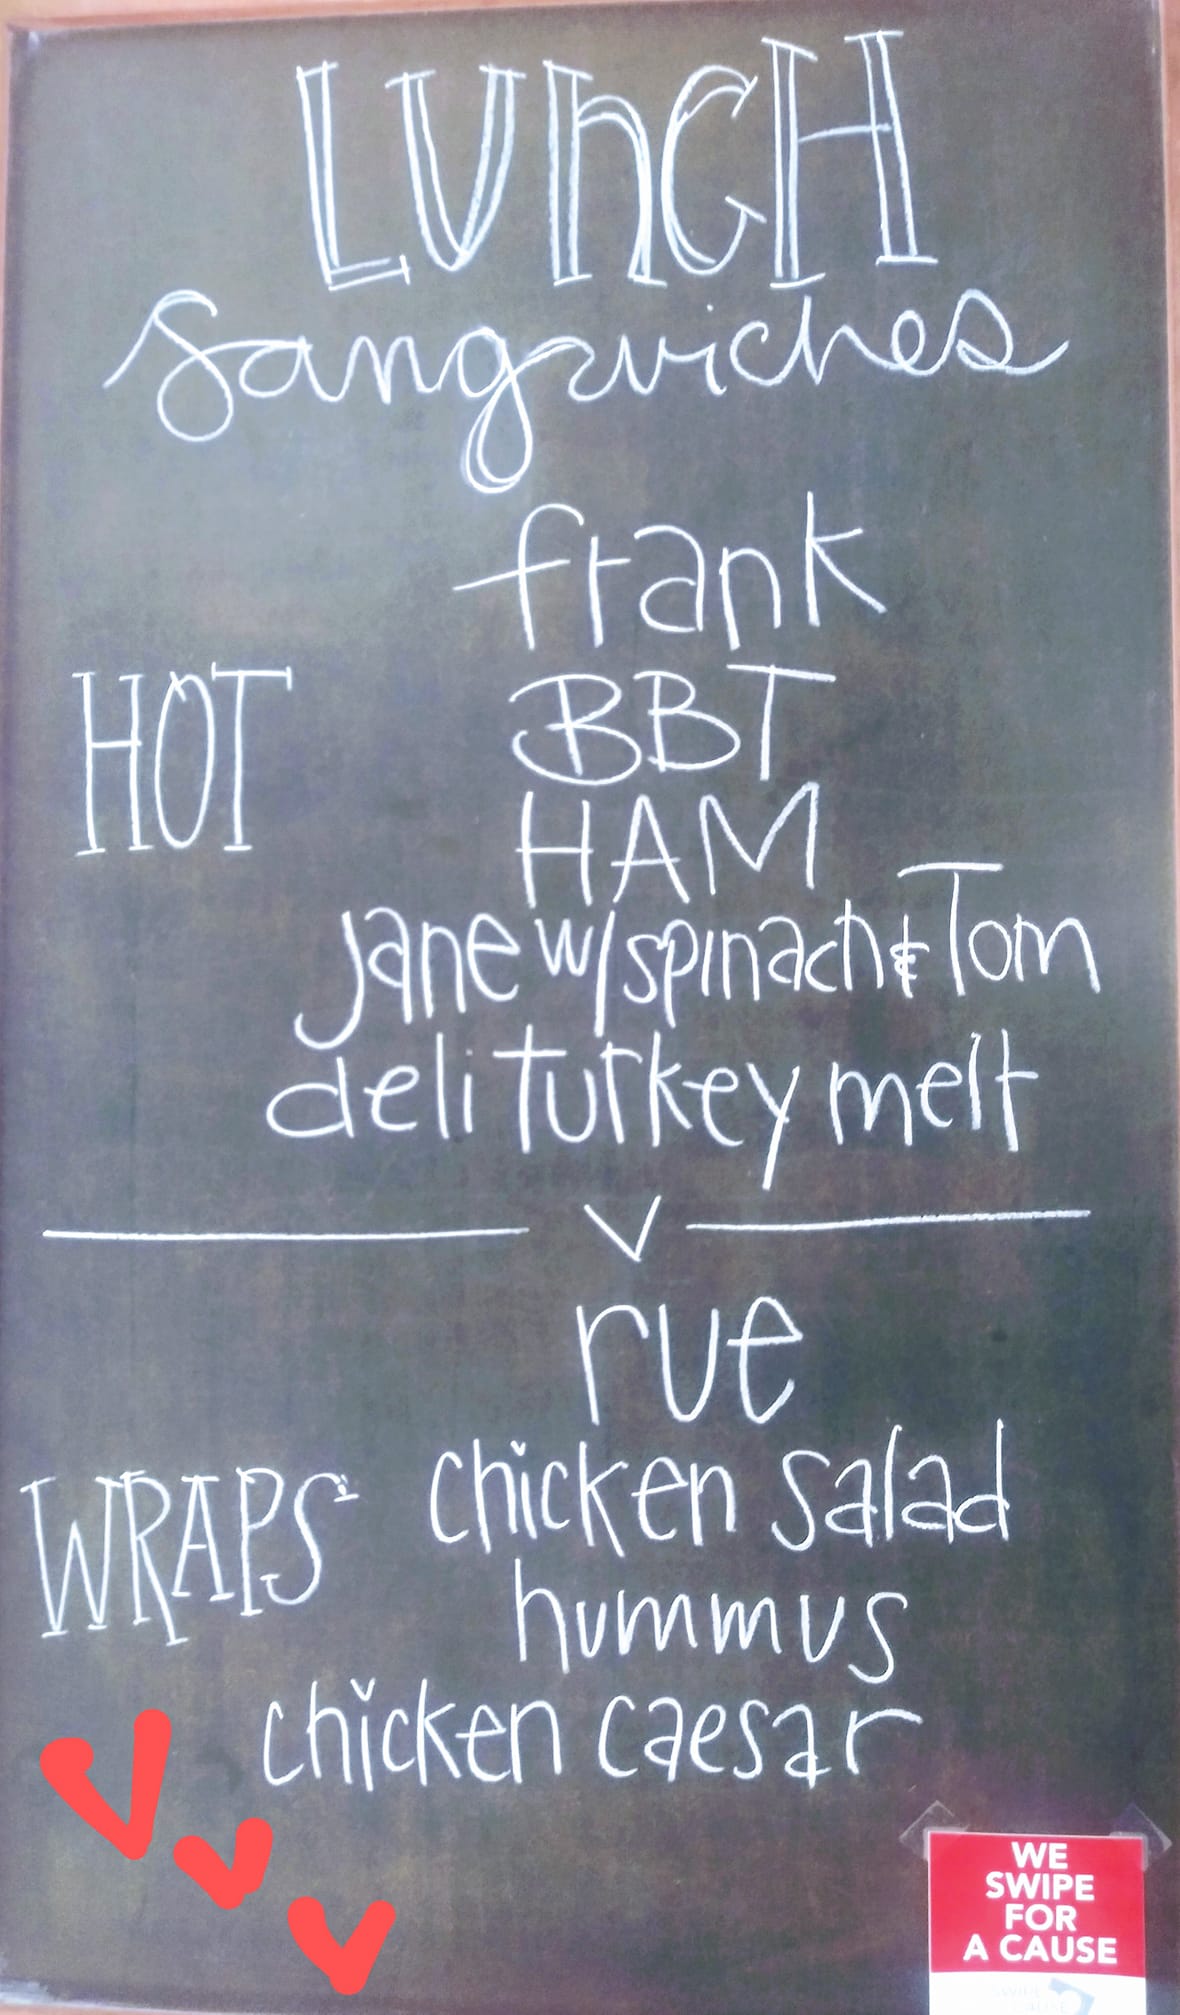 LUnCH
Sangwiches
frank
HOT
BBT
HAM
jane w/ spinach & Tom
deli turkey melt
rue
WRAPS
chicken salad
hummus
chicken caesar
WE
SWIPE
FOR
A CAUSE